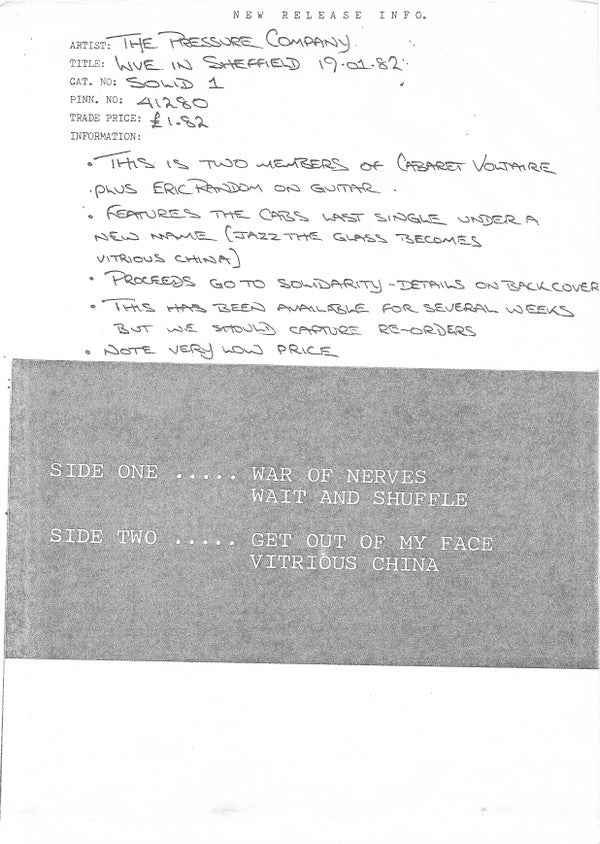 NEW RELEASE INFO.
ARTIST: THE PRESSURE COMPANY
TITLE: LIVE IN SHEFFIELD 19.01.82
CAT. NO: SOLID 1
PINN. NO: 41280
TRADE PRICE: £1.82
INFORMATION:
• THIS IS TWO MEMBERS OF CABARET VOLTAIRE
PLUS ERIC RANDOM ON GUITAR.
• FEATURES THE CABS LAST SINGLE UNDER A
NEW NAME (JAZZ THE GLASS BECOMES
VITRIOUS CHINA)
• PROCEEDS GO TO SOLIDARITY - DETAILS ON BACK COVER
• THIS HAS BEEN AVAILABLE FOR SEVERAL WEEKS
BUT WE SHOULD CAPTURE RE-ORDERS
• NOTE VERY LOW PRICE
SIDE ONE ..... WAR OF NERVES
WAIT AND SHUFFLE
SIDE TWO ..... GET OUT OF MY FACE
VITRIOUS CHINA